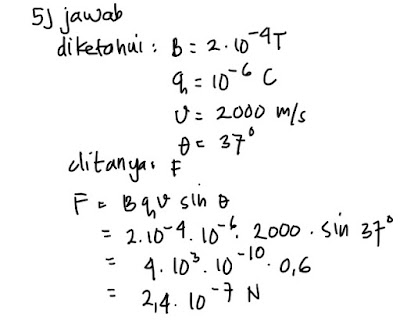 5) jawab
diketahui : B = 2.10⁻⁴T
q = 10⁻⁶ C
v = 2000 m/s
θ = 37°
ditanya: F
F = B q v sin θ
= 2.10⁻⁴. 10⁻⁶. 2000 . sin 37°
= 4.10³. 10⁻¹⁰. 0,6
= 2,4. 10⁻⁷ N